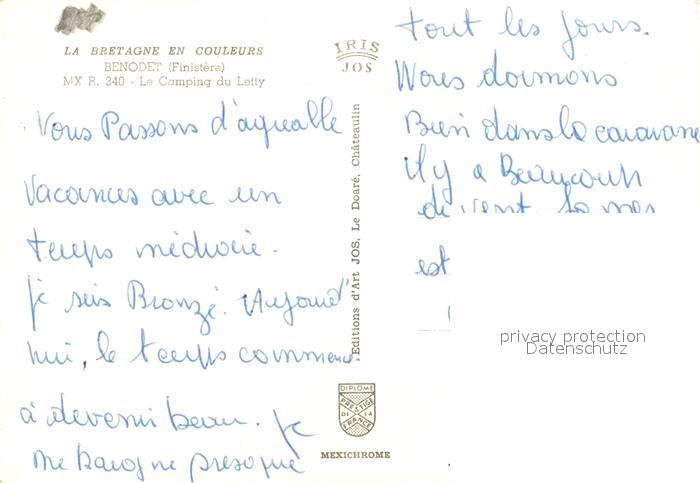 LA BRETAGNE EN COULEURS
BENODET (Finistère)
MX R. 340 - Le Camping du Letty
Vous Passons d'agreable
Vacances avec un
temps médiocre.
je suis Bronzé. Aujourd'
hui, le temps commence
à devenir beau. je
me baigne presque
IRIS
JOS
Editions d'Art JOS, Le Doaré, Châteaulin
DIPLOME
PRESTIGE
DE LA
FRANCE
MEXICHROME
tout les jours.
Nous dormons
Bien dans la caravane
il y a Beaucoup
de vent. la mer
est
privacy protection
Datenschutz